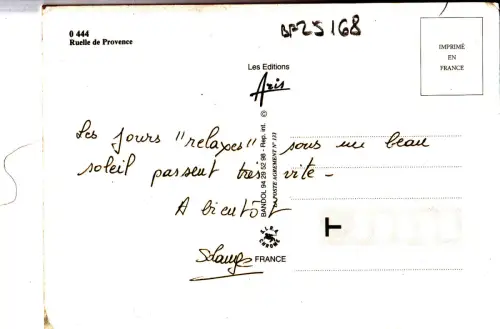 0 444
Ruelle de Provence
BP25168
IMPRIMÉ
EN
FRANCE
Les Editions
Aris
BANDOL 94 29 52 98 - Rep. int. ©
LA POSTE AGREMENT N° 133
Les jours "relaxes" sous un beau
soleil passent très vite -
A bientôt
Solange
FRANCE
T